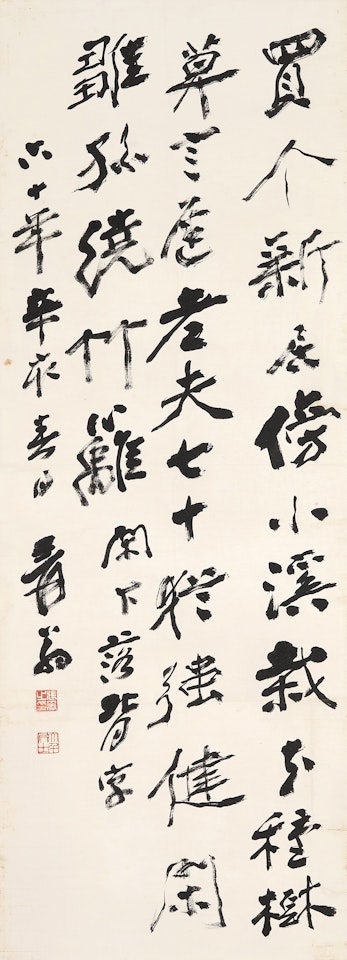 買个新居傍小溪栽花種樹
草老夫七十猶強健閑
雛孫繞竹籬 閑下落背字
六十年辛亥春日 爰翁